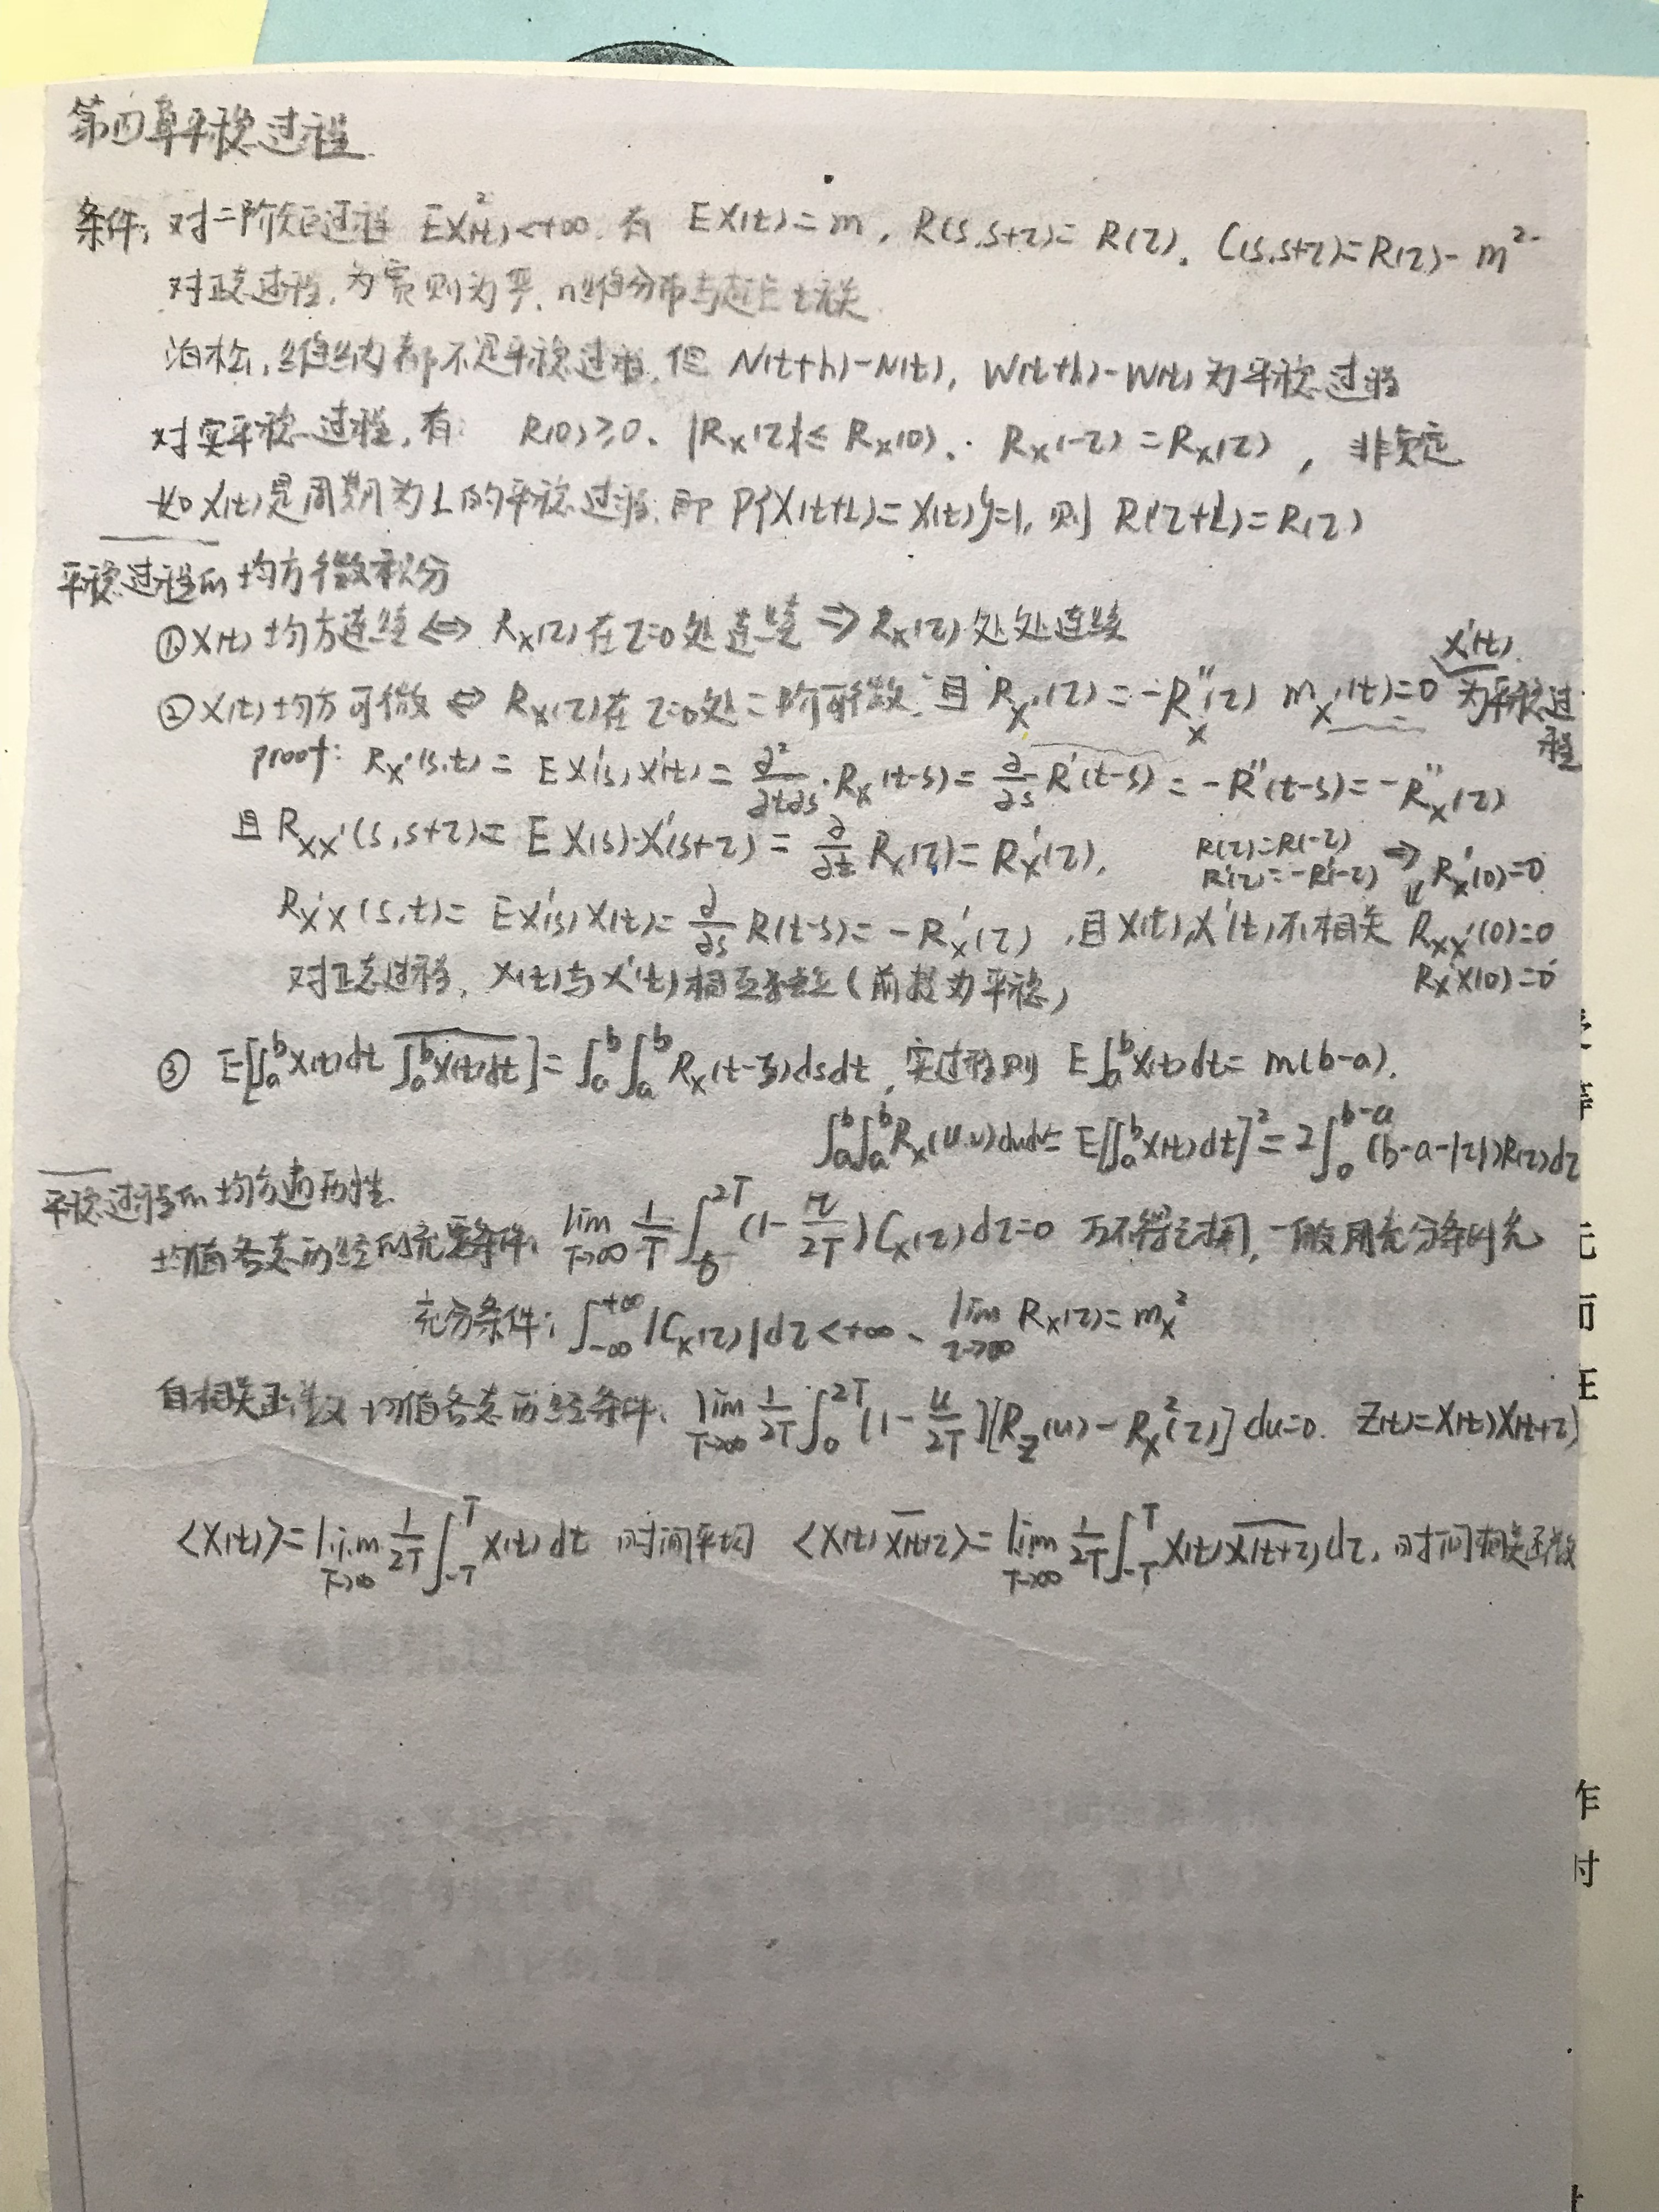 第四章平稳过程
条件: 对二阶矩过程 EX²(t)<+∞. 有 EX(t)=m, R(s,s+τ)=R(τ). C(s,s+τ)=R(τ)-m²
对正态过程, 为宽则为严, n维分布与起点t无关.
泊松, 维纳都不是平稳过程, 但 N(t+h)-N(t), W(t+h)-W(t) 为平稳过程
对实平稳过程, 有: R(0)≥0、|Rx(τ)|≤Rx(0)、Rx(-τ)=Rx(τ), 非负定
如X(t)是周期为L的平稳过程, 即 P{X(t+L)=X(t)}=1, 则 R(τ+L)=R(τ)
平稳过程的均方微积分
① X(t)均方连续 ⇔ Rx(τ)在τ=0处连续 ⇒ Rx(τ)处处连续
② X(t)均方可微 ⇔ Rx(τ)在τ=0处二阶可微. 且 Rx'(τ)=-R''x(τ) mx'(t)=0 X'(t)为平稳过程
proof: Rx'(s,t)=EX'(s)X'(t)=∂²/∂t∂s·Rx(t-s)=∂/∂s R'(t-s)=-R''(t-s)=-R''x(τ)
且 Rxx'(s,s+τ)=EX(s)·X'(s+τ)=∂/∂t Rx(τ)=R'x(τ).
R(τ)=R(-τ)
R'(τ)=-R'(-τ) ⇒ R'x(0)=0
⇓
Rx'x(s,t)=EX'(s)X(t)=∂/∂s R(t-s)=-R'x(τ), 且X(t),X'(t)不相关 Rxx'(0)=0
Rx'x(0)=0
对正态过程, X(t)与X'(t)相互独立(前提为平稳)
③ E[∫ₐᵇX(t)dt \overline{∫ₐᵇX(t)dt}]=∫ₐᵇ∫ₐᵇRx(t-s)dsdt, 实过程则 E∫ₐᵇX(t)dt=m(b-a).
∫ₐᵇ∫ₐᵇRx(u,v)dudv=E[∫ₐᵇX(t)dt]²=2∫₀^{b-a}(b-a-|τ|)R(τ)dτ
平稳过程的均方遍历性
均值各态历经的充要条件: lim_{T→∞} 1/T ∫₀^{2T}(1-τ/2T)Cx(τ)dτ=0 万不得已才用, 一般用充分条件
充分条件: ∫_{-∞}^{+∞}|Cx(τ)|dτ<+∞、lim_{τ→∞}Rx(τ)=mx²
自相关函数均值各态历经条件: lim_{T→∞} 1/2T ∫₀^{2T}(1-u/2T)[Rz(u)-Rx²(τ)]du=0. Z(t)=X(t)X(t+τ)
⟨X(t)⟩=l.i.m_{T→∞} 1/2T ∫_{-T}^{T}X(t)dt 时间平均 ⟨X(t)\overline{X(t+τ)}⟩=lim_{T→∞} 1/2T ∫_{-T}^{T}X(t)\overline{X(t+τ)}dτ, 时间相关函数
元
而
王
乍
时